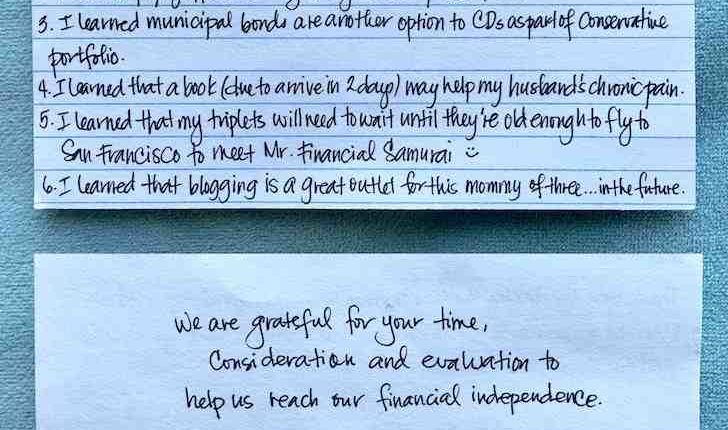 3. I learned municipal bonds are another option to CDs as part of Conservative
portfolio.
4. I learned that a book (due to arrive in 2 days) may help my husband's chronic pain.
5. I learned that my triplets will need to wait until they're old enough to fly to
San Francisco to meet Mr. Financial Samurai
6. I learned that blogging is a great outlet for this mommy of three... in the future.
We are grateful for your time,
Consideration and evaluation to
help us reach our financial independence.